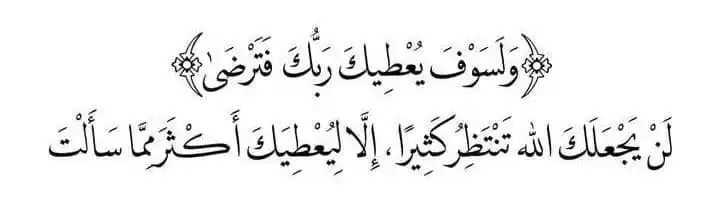 ﴿وَلَسَوْفَ يُعْطِيكَ رَبُّكَ فَتَرْضَىٰ﴾
لَنْ يَجْعَلَكَ الله تَنْتَظِرُ كَثِيرًا، إِلَّا لِيُعْطِيَكَ أَكْثَرَ مِمَّا سَأَلْتَ